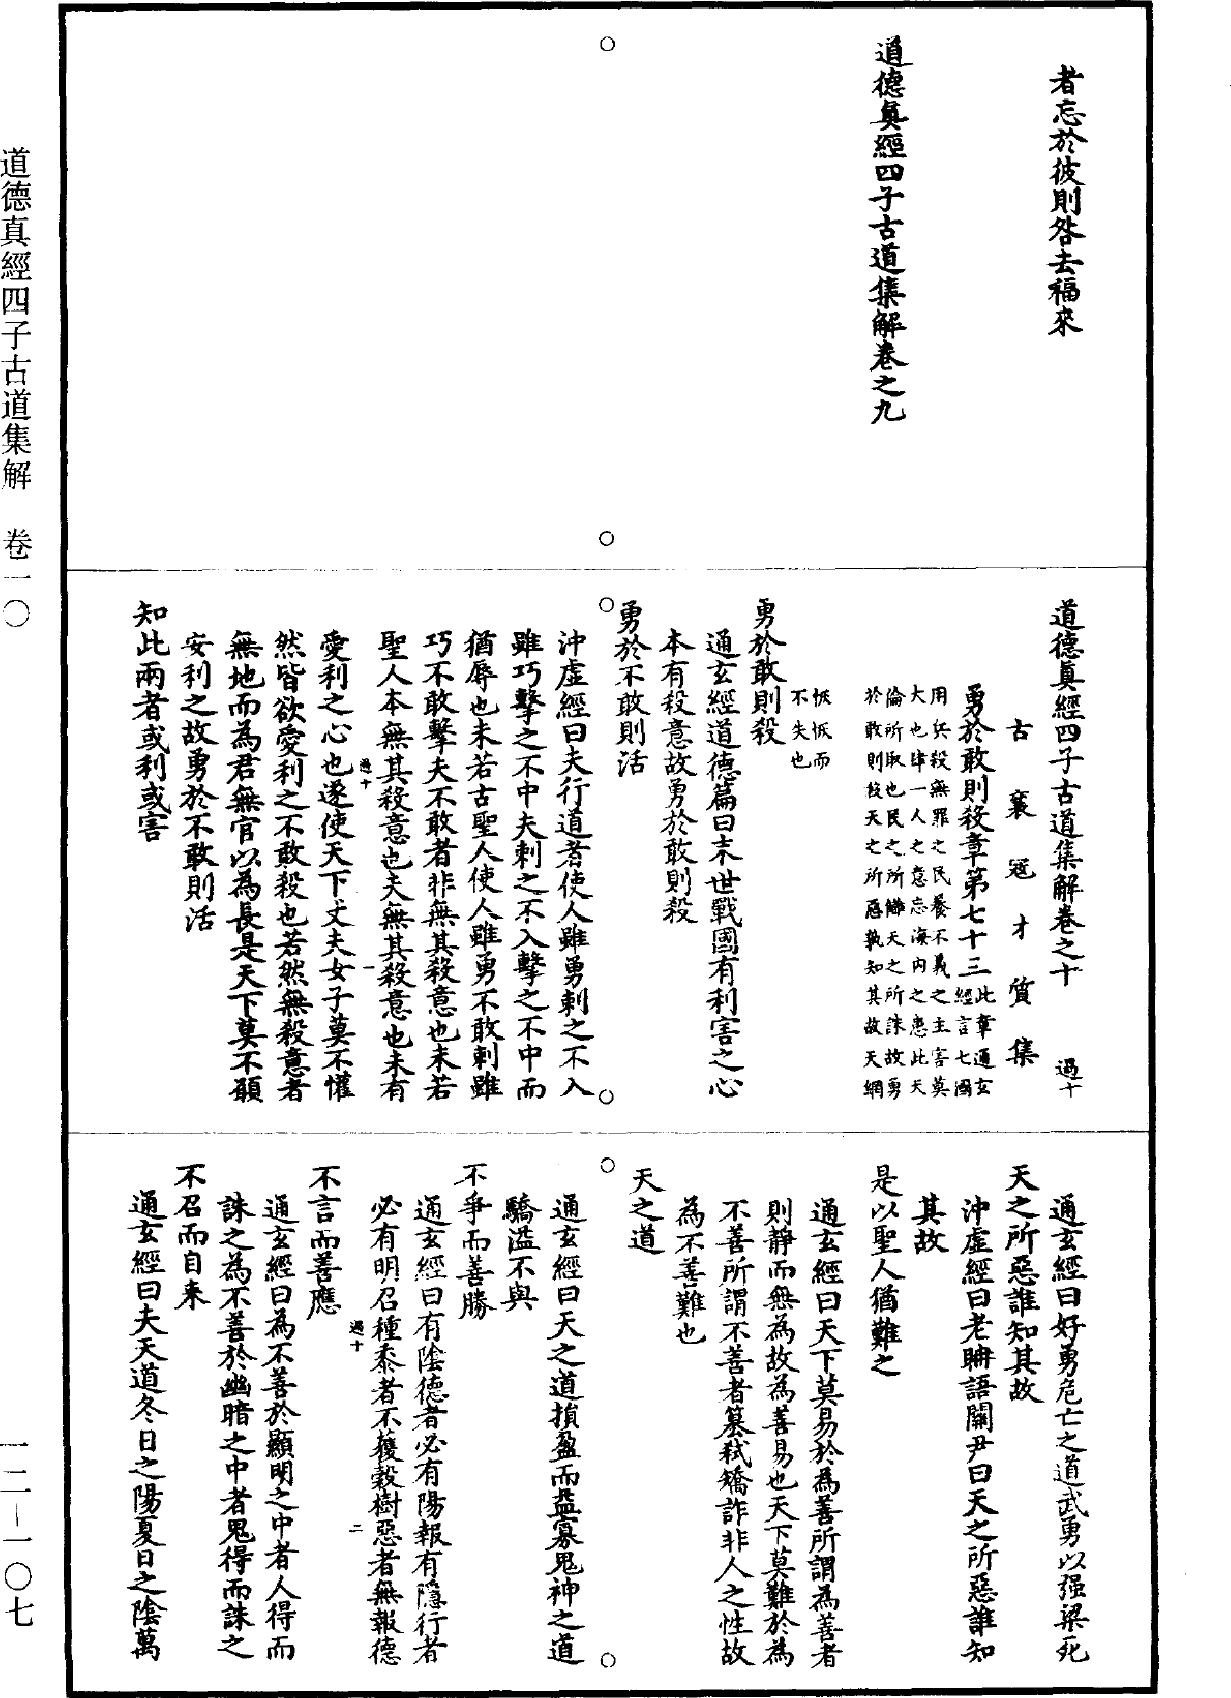 者忘於彼則咎去福來
道德真經四子古道集解卷之九
道德真經四子古道集解卷之十 過十
古襄寇才質集
勇於敢則殺章第七十三
此章通玄
經言七國
用兵殺無罪之民養不義之主害莫
大也肆一人之意忘海内之患此天
倫所取也民之所讎天之所誅故勇
於敢則殺天之所惡孰知其故天網
恢恢而
不失也
勇於敢則殺
通玄經道德篇曰末世戰國有利害之心
本有殺意故勇於敢則殺
勇於不敢則活
沖虛經曰夫行道者使人雖勇刺之不入
雖巧擊之不中夫刺之不入擊之不中而
猶辱也未若古聖人使人雖勇不敢刺雖
巧不敢擊夫不敢者非無其殺意也未若
聖人本無其殺意也夫無其殺意也未有
過十 一
愛利之心也遂使天下丈夫女子莫不懽
然皆欲愛利之不敢殺也若然無殺意者
無地而為君無官以為長是天下莫不願
安利之故勇於不敢則活
知此兩者或利或害
通玄經曰好勇危亡之道武勇以强梁死
天之所惡誰知其故
沖虛經曰老聃語關尹曰天之所惡誰知
其故
是以聖人猶難之
通玄經曰天下莫易於為善所謂為善者
則靜而無為故為善易也天下莫難於為
不善所謂不善者篡弒矯詐非人之性故
為不善難也
天之道
通玄經曰天之道損盈而益寡鬼神之道
驕溢不與
不爭而善勝
通玄經曰有陰德者必有陽報有隱行者
必有明召種黍者不穫穀樹惡者無報德
過十 二
不言而善應
通玄經曰為不善於顯明之中者人得而
誅之為不善於幽暗之中者鬼得而誅之
不召而自来
通玄經曰夫天道冬日之陽夏日之陰萬
道德真經四子古道集解 卷一〇
一二－一〇七